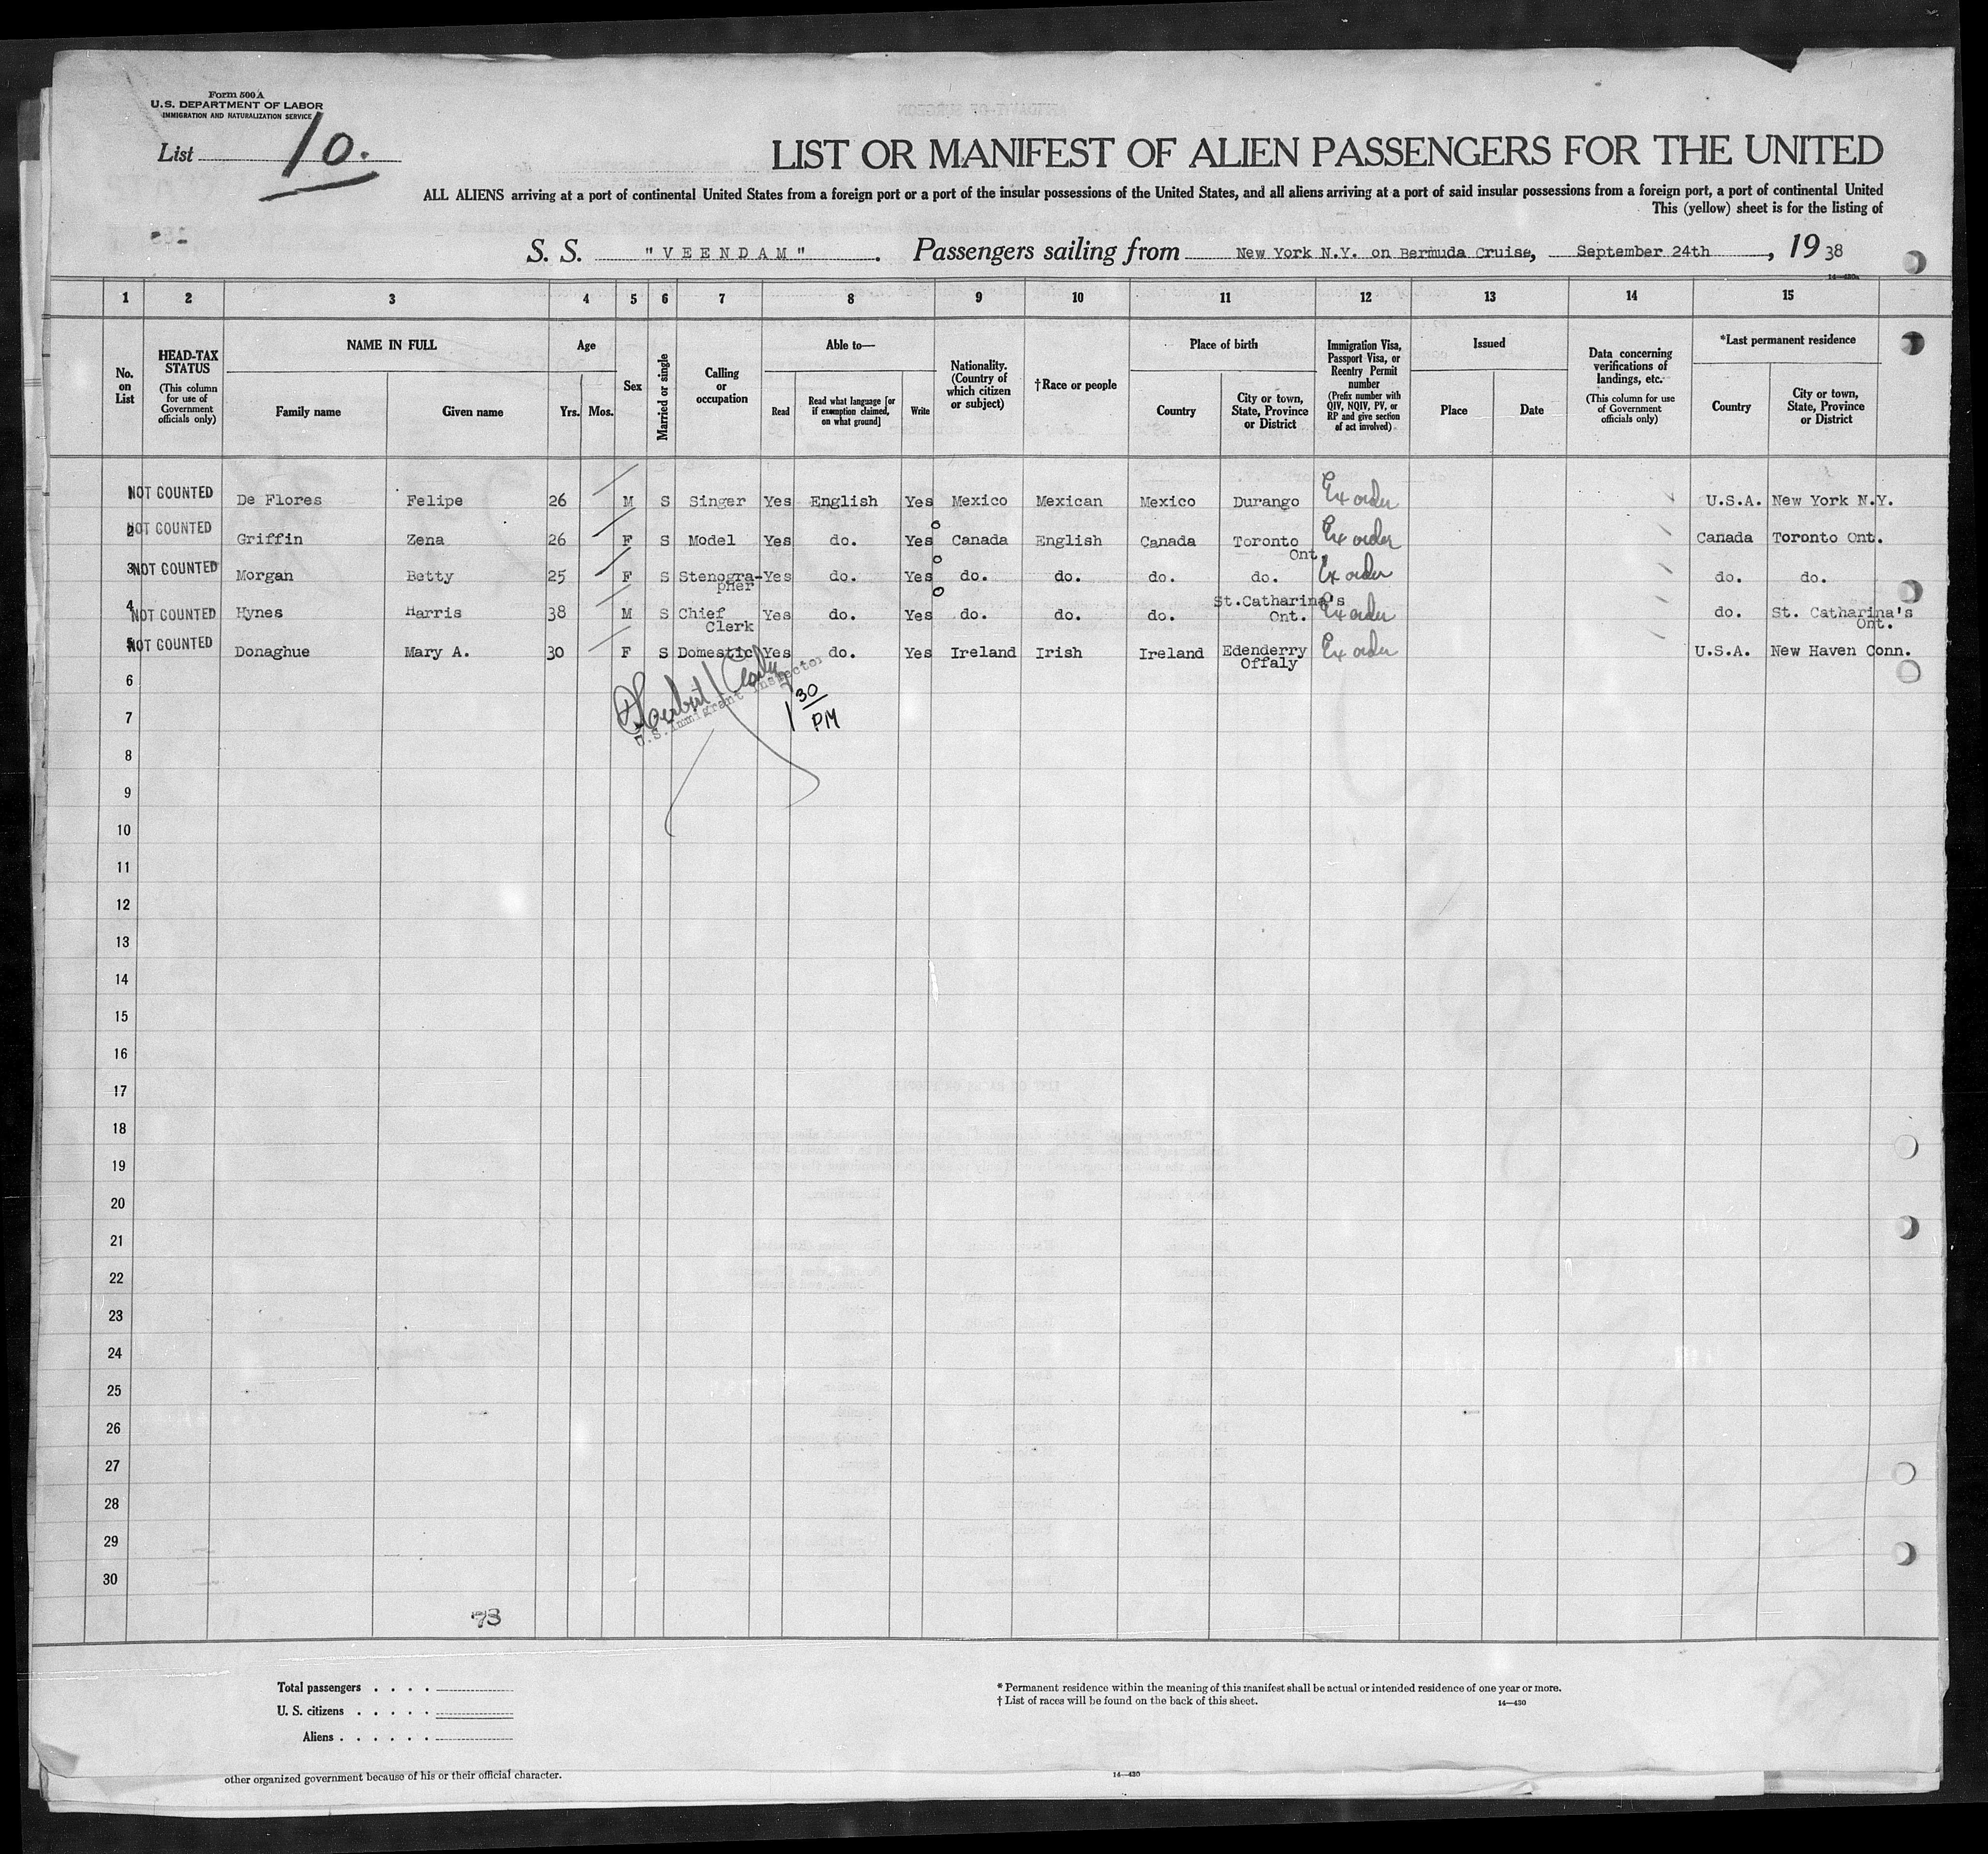 Form 500 A
U.S. DEPARTMENT OF LABOR
IMMIGRATION AND NATURALIZATION SERVICE
List 10.
LIST OR MANIFEST OF ALIEN PASSENGERS FOR THE UNITED
ALL ALIENS arriving at a port of continental United States from a foreign port or a port of the insular possessions of the United States, and all aliens arriving at a port of said insular possessions from a foreign port, a port of continental United
This (yellow) sheet is for the listing of
S. S. "VEENDAM". Passengers sailing from New York N.Y. on Bermuda Cruise, September 24th, 1938
14—430a
1 2 3 4 5 6 7 8 9 10 11 12 13 14 15
No. on List
HEAD-TAX STATUS (This column for use of Government officials only)
NAME IN FULL
Family name Given name
Age
Yrs. Mos.
Sex
Married or single
Calling or occupation
Able to—
Read
Read what language [or if exemption claimed, on what ground]
Write
Nationality. (Country of which citizen or subject)
†Race or people
Place of birth
Country
City or town, State, Province or District
Immigration Visa, Passport Visa, or Reentry Permit number (Prefix number with QIV, NQIV, PV, or RP and give section of act involved)
Issued
Place Date
Data concerning verifications of landings, etc. (This column for use of Government officials only)
*Last permanent residence
Country
City or town, State, Province or District
1 NOT COUNTED De Flores Felipe 26 M S Singer Yes English Yes Mexico Mexican Mexico Durango Ex order U.S.A. New York N.Y.
2 NOT COUNTED Griffin Zena 26 F S Model Yes do. Yes Canada English Canada Toronto Ont. Ex order Canada Toronto Ont.
3 NOT COUNTED Morgan Betty 25 F S Stenogra-pher Yes do. Yes do. do. do. do. Ex order do. do.
4 NOT COUNTED Hynes Harris 38 M S Chief Clerk Yes do. Yes do. do. do. St.Catharina's Ont. Ex order do. St. Catharina's Ont.
5 NOT COUNTED Donaghue Mary A. 30 F S Domestic Yes do. Yes Ireland Irish Ireland Edenderry Offaly Ex order U.S.A. New Haven Conn.
U.S. Immigrant Inspector
1 30 PM
6
7
8
9
10
11
12
13
14
15
16
17
18
19
20
21
22
23
24
25
26
27
28
29
30
73
Total passengers . . . .
U. S. citizens . . . . .
Aliens . . . . . .
* Permanent residence within the meaning of this manifest shall be actual or intended residence of one year or more.
† List of races will be found on the back of this sheet.
14—430
other organized government because of his or their official character.
14—430